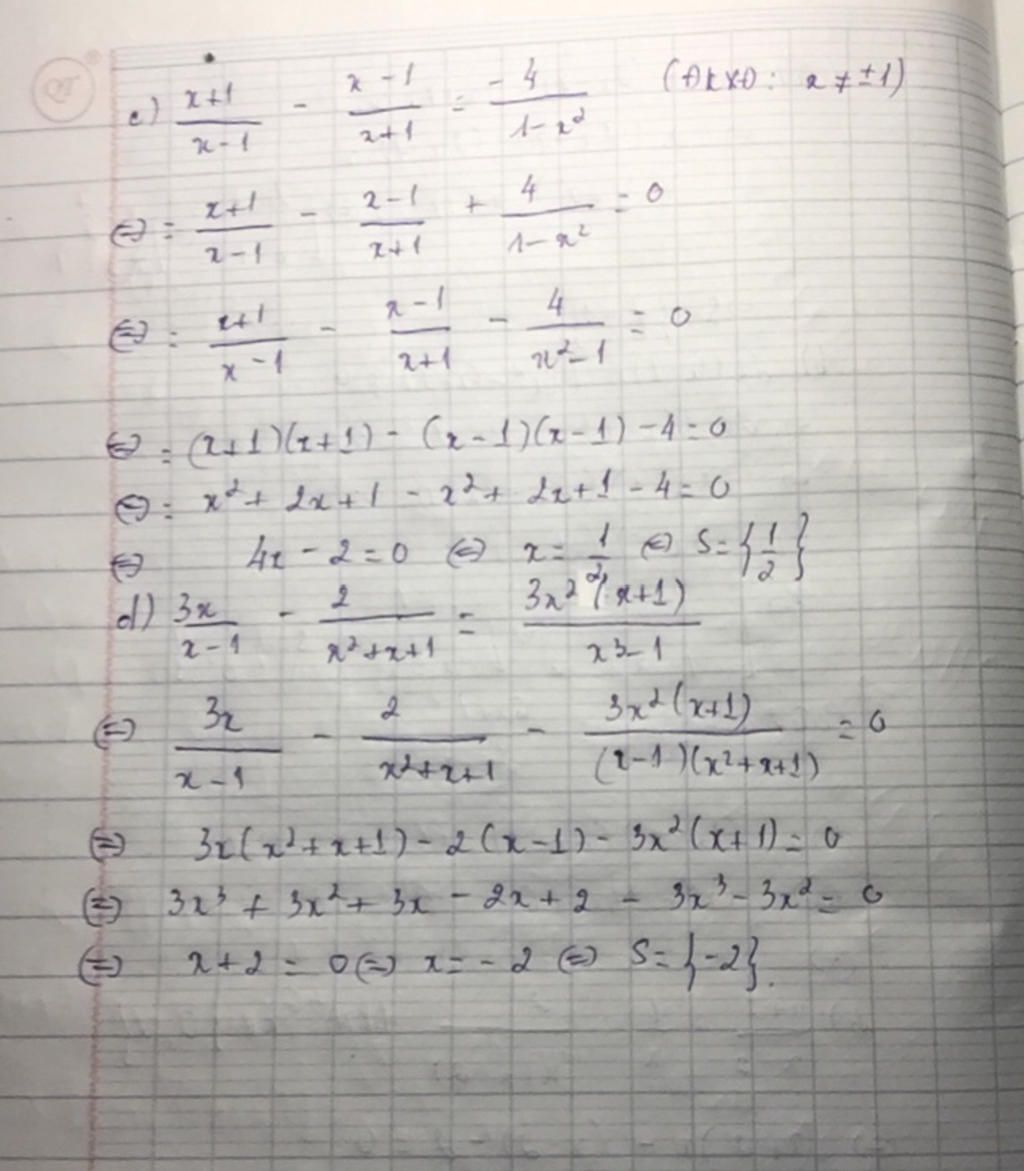 c) (x+1)/(x-1) - (x-1)/(x+1) = -4/(1-x²) (ĐKXĐ: x ≠ ±1)
⇔ = (x+1)/(x-1) - (x-1)/(x+1) + 4/(1-x²) = 0
⇔ = (x+1)/(x-1) - (x-1)/(x+1) - 4/(x²-1) = 0
⇔ = (x+1)(x+1) - (x-1)(x-1) - 4 = 0
⇔ = x² + 2x + 1 - x² + 2x + 1 - 4 = 0
⇔ 4x - 2 = 0 ⇔ x = 1/2 ⇔ S = {1/2}
d) 3x/(x-1) - 2/(x²+x+1) = 3x²(x+1)/(x³-1)
⇔ 3x/(x-1) - 2/(x²+x+1) - 3x²(x+1)/((x-1)(x²+x+1)) = 0
⇔ 3x(x²+x+1) - 2(x-1) - 3x²(x+1) = 0
⇔ 3x³ + 3x² + 3x - 2x + 2 - 3x³ - 3x² = 0
⇔ x + 2 = 0 ⇔ x = -2 ⇔ S = {-2}.